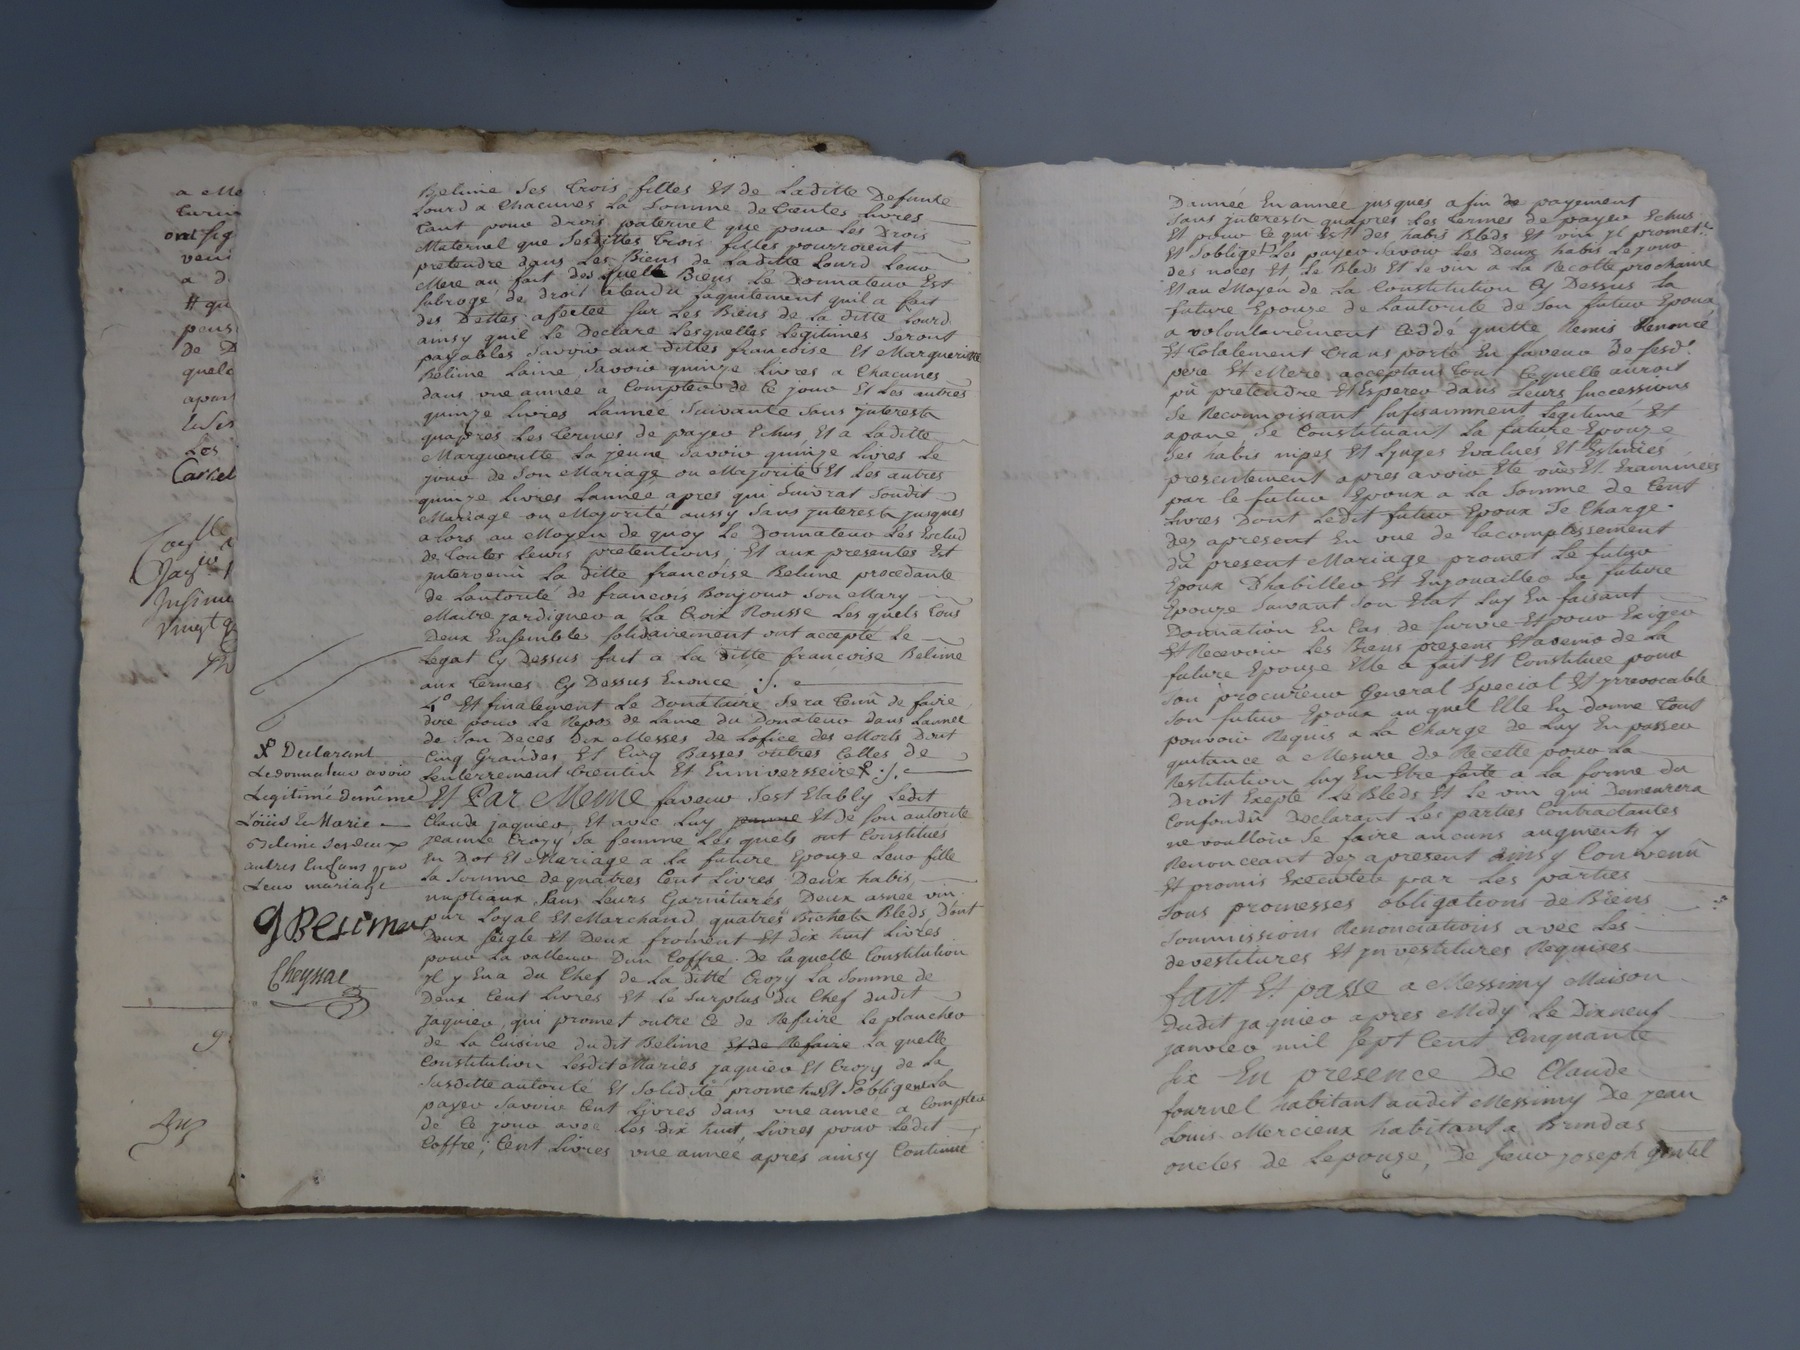 Belime ses trois filles Et de Laditte Defunte
Lourd a Chacunes La Somme de trentes Livres
tant pour droit paternel que pour Les Drois
Maternel que Sesdittes trois filles pourroient
pretendre dans Les Biens de Laditte Lourd Leur
Mere au fait des quelle Biens Le Donnateur Est
subrogé de droit atendu Laquitement quil a fait
des Dettes afectee sur Les Biens de La ditte Lourd
ainsy quil Le Declare Lesquelles Legitimes seront
payables Savoir aux dittes francoise Et Margueritte
Belime Laine, Savoir quinze Livres a Chacunes
dans une année a Compter de Ce jour Et Les autres
quinze Livres Lannée Suivante Sans jnterests
quapres Les termes de payer Echus Et a Laditte
Margueritte La jeune Savoir quinze Livres Le
jour de Son Mariage ou Majorité Et Les autres
quinze Livres Lannée apres qui Suivrat Soudit
Mariage ou Majorité aussy Sans jnterests jusques
alors au Moyen de quoy Le Donnateur Les Exclud
de toutes Leurs pretentions Et aux presentes Est
jntervenü La ditte francoise Belime procedante
de Lautorité de francois Bonjour Son Mary
Maitre jardignier a La Croix Rousse Les quels tous
Deux Ensembles Solidairement ont accepté Le
Legat Cy Dessus fait a La ditte francoise Belime
aux termes Cy Dessus Enonce :/.
4° Et finalement Le Donataire Sera tenû de faire
dire pour Le Repos de Lame du Donateur dans Lannee
de Son Deces Dix Messes de Lofice des Morts Dont
Cinq Grandes Et Cinq Basses outres Celles de
Lenterrement trentin Et Enniversseire :/.
Et Par Meme faveur Sest Etably Ledit
Claude jaquier, Et avec Luy jeanne Et de Son autorité
jeanne Crozy Sa femme Les quels ont Constitués
En Dot Et Mariage a La future Epouze Leur fille
La Somme de quatres Cent Livres Deux habis,
nuptiaux Sans Leurs Garnitures Deux asnee vin
pur Loyal Et Marchand quatres Bichets Bleds, Dont
Deux Seigle Et Deux froment Et Dix huit Livres
pour La valleur Dun Coffre. De laquelle Constitution
jl y En a du Chef de La ditte Crozy La Somme de
Deux Cent Livres Et Le Surplus du Chef dudit
jaquier, qui promet outre Ce de Refaire Le plancher
de La Cuisine dudit Belime Et de Refaire La quelle
Constitution Lesdit Mariés jaquier Et Crozy de La
Susditte autorité Et Solidité promettent Et Sobligent La
payer Savoir Cent Livres dans une année a Compter
de Ce jour avec Les dix huit, Livres pour Ledit
Coffre, Cent Livres une année apres ainsy Continué
Declarant
Le donnateur avoir
Legitimé de même
Loüis Et Marie
Belime Ses deux
autres Enfans
Leur mariage
Belime
Cheynac
Dannée En année jusques a fin de payement
Sans jnterests quapres Les termes de payer Echus
Et pour Ce qui Est des habis Bleds Et vin jl promette
Et Soblige Les payer Savoir Les Deux habis Le jour
des noces Et Le Bleds Et Le vin a La Recolte prochaine
Et au Moyen de La Constitution Cy Dessus La
future Epouze de Lautorité de Son futur Epoux
a volontairement Ceddé quitté Remis Renoncé
Et totalement transporté En faveur de Sesd.
pere Et Mere acceptans tout Ce quelle auroit
pû pretendre Et Esperer dans Leurs Successions
Se Reconnoissant Sufisamment Legitimé Et
apané Se Constituant La future Epouze
Ses habis nipes Et Lynges Evalués Et Estimés
presentement apres avoir Eté vûes Et Examinées
par le futur Epoux a La Somme de Cent
Livres Dont Ledit futur Epoux Se Charge.
Dez apresent En vue de lacomplissement
du present Mariage promet Le futur
Epoux Dhabiller Et Enjouailler Sa future
Epouze Suivant Son Etat Luy En faisant
Donnation En Cas de Survie Et pour Exiger
Et Recevoir Les Biens presens Et avenir de La
future Epouze Elle a fait Et Constitué pour
Son procureur General Special Et jrrevocable
Son futur Epoux au quel Elle En donne tout
pouvoir Requis a La Charge de Luy En passer
quitance a Mesure de Recette pour La
Restitution Luy En Etre faite a La forme du
Droit Exepté Le Bleds Et Le vin qui Demeurera
Confondû Declarant Les parties Contractantes
ne voulloir Se faire aucuns augments y
Renonceant dez apresent ainsy Convenû
Et promis Executer par Les parties
Sous promesses obligations de Biens
Soumissions Renonciations avec Les
devestitures Et jnvestitures Requises
fait Et passé a Messimy Maison
dudit jaquier apres Midy Le Dixneuf
janvier mil Sept Cent Cinquante
Six En presence De Claude
fournel habitant audit Messimy De jean
Louis Mercieux habitant a Brindas
oncles de Lepouze, De Sieur joseph Gentil